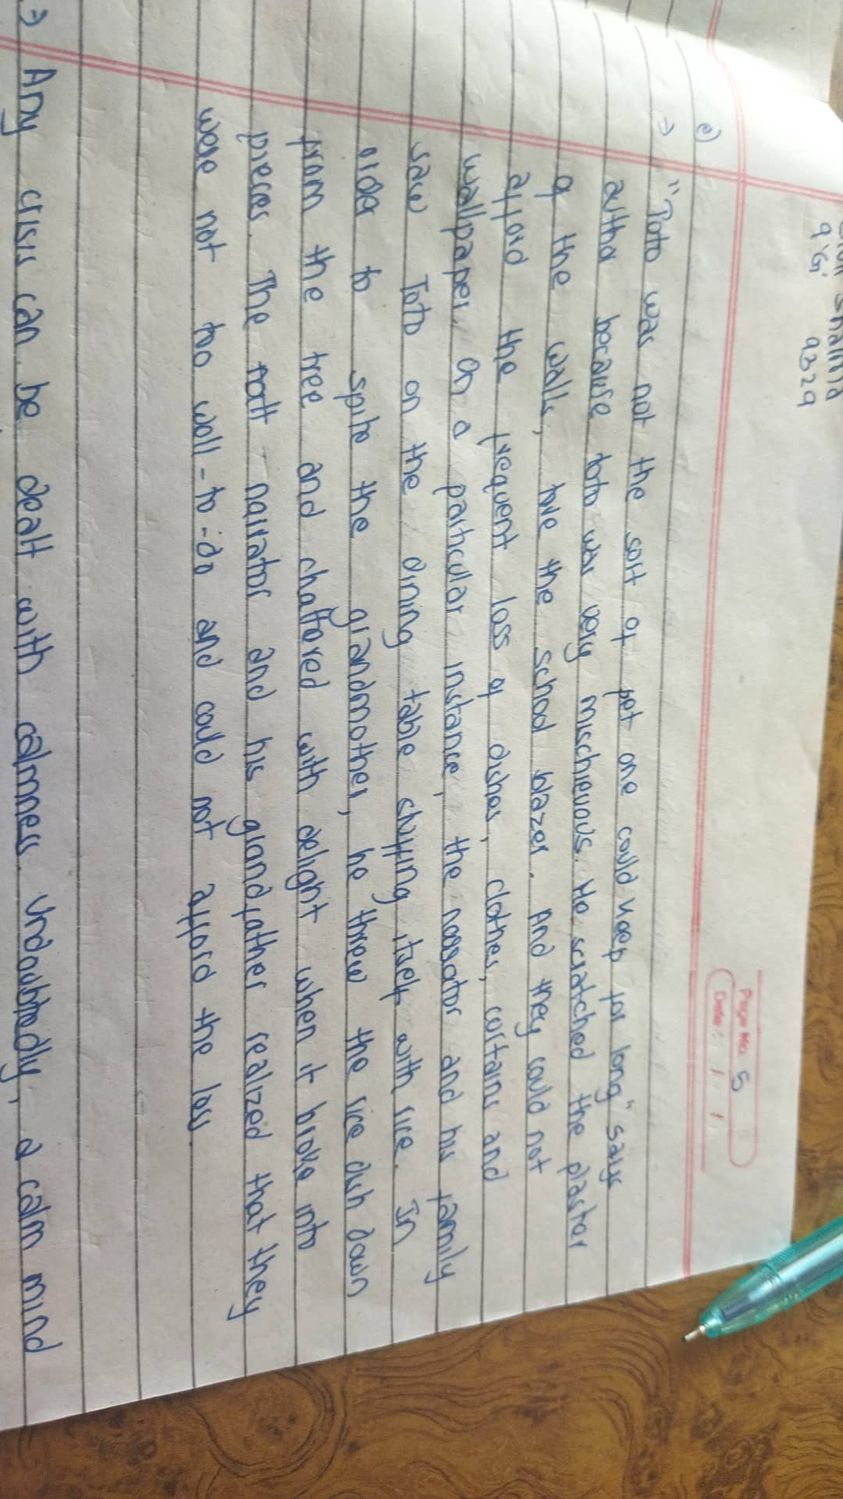 Sharma
9'G' 9329
Page No. 5
Date: / /
e)
→ "Toto was not the sort of pet one could keep for long" says
author because toto was very mischievous. He scratched the plaster
of the walls, tore the school blazer. And they could not
afford the frequent loss of dishes, clothes, curtains and
wallpaper. On a particular instance, the narrator and his family
saw Toto on the dining table stuffing itself with rice. In
order to spite the grandmother, he threw the rice dish down
from the tree and chattered with delight when it broke into
pieces. The narrator and his grandfather realized that they
were not too well-to-do and could not afford the loss.
→ Any crisis can be dealt with calmness. Undoubtedly, a calm mind